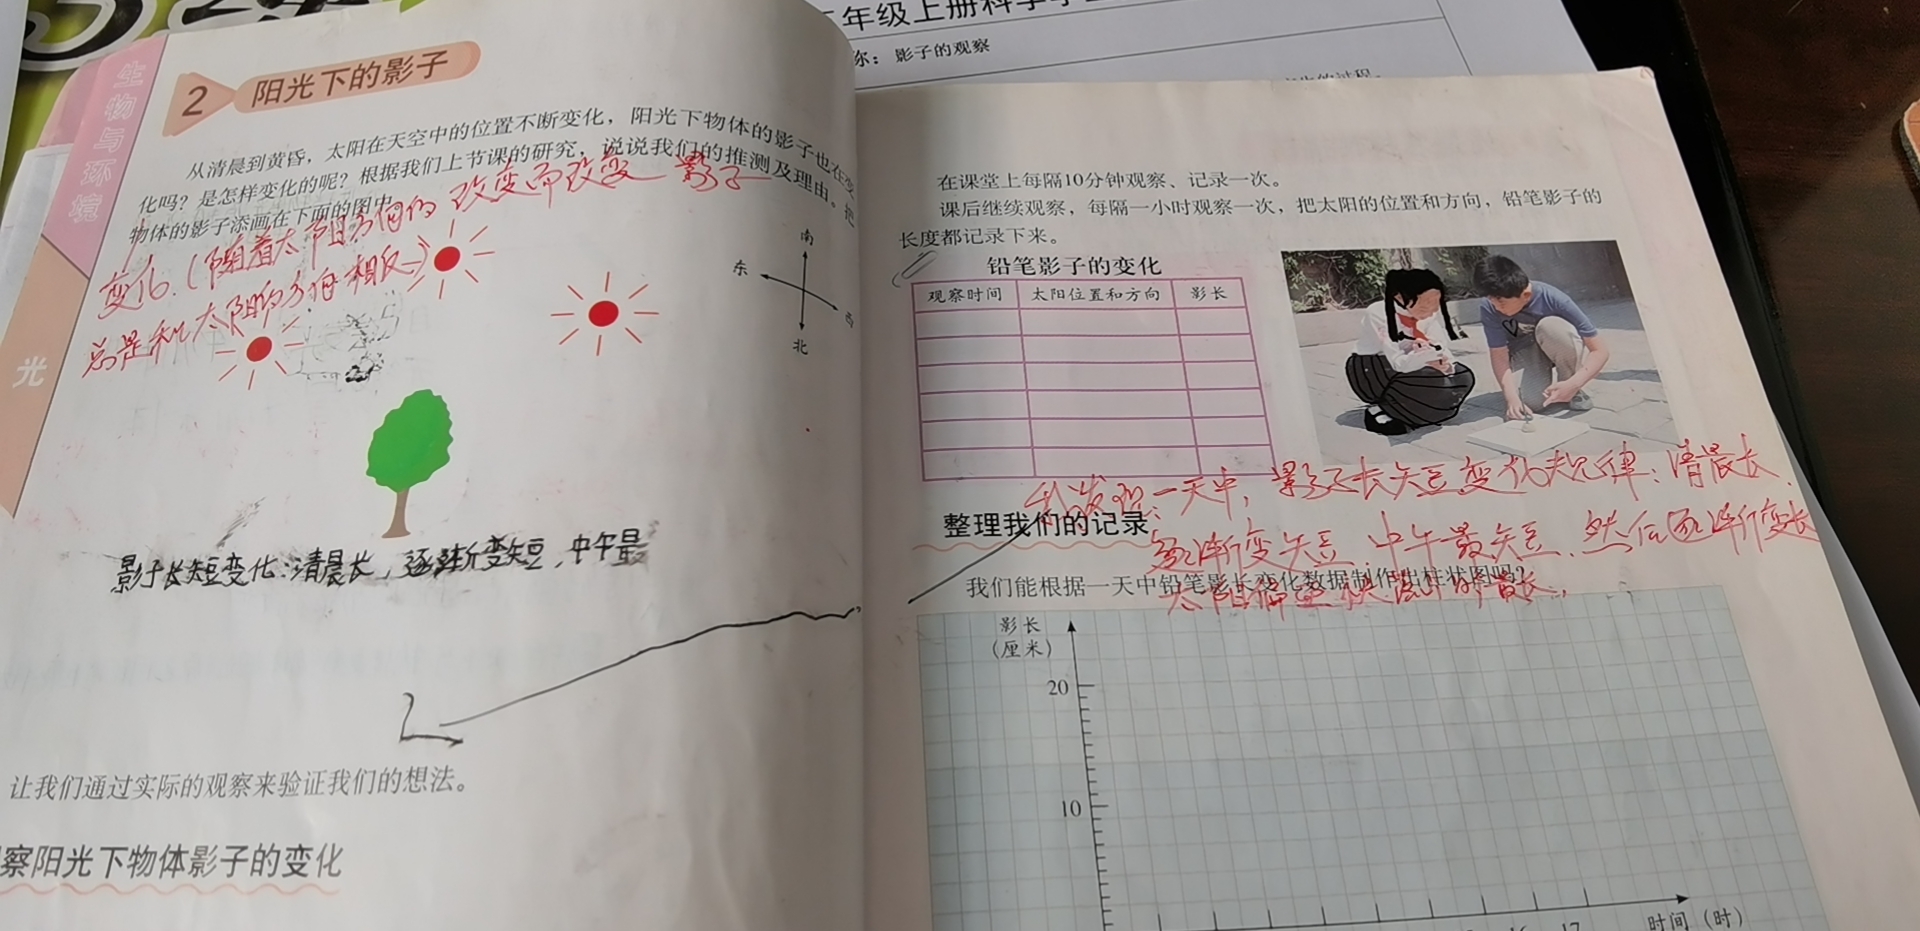 年级上册科学
称：影子的观察
生物与环境
光
2 阳光下的影子
从清晨到黄昏，太阳在天空中的位置不断变化，阳光下物体的影子也在变
化吗？是怎样变化的呢？根据我们上节课的研究，说说我们的推测及理由。把
物体的影子添画在下面的图中。
改变而改变 影子
变化.(随着太阳方向的
总是和太阳的方向相反)
南
东
西
北
影子长短变化:清晨长,逐渐变短,中午最
让我们通过实际的观察来验证我们的想法。
察阳光下物体影子的变化
在课堂上每隔10分钟观察、记录一次。
课后继续观察，每隔一小时观察一次，把太阳的位置和方向，铅笔影子的
长度都记录下来。
铅笔影子的变化
观察时间 太阳位置和方向 影长
我发现:一天中,影子长短变化规律:清晨长.
整理我们的记录
逐渐变短.中午最短.然后逐渐变长
我们能根据一天中铅笔影长变化数据制作出柱状图吗？
影长
（厘米）
20
10
16 17
时间（时）